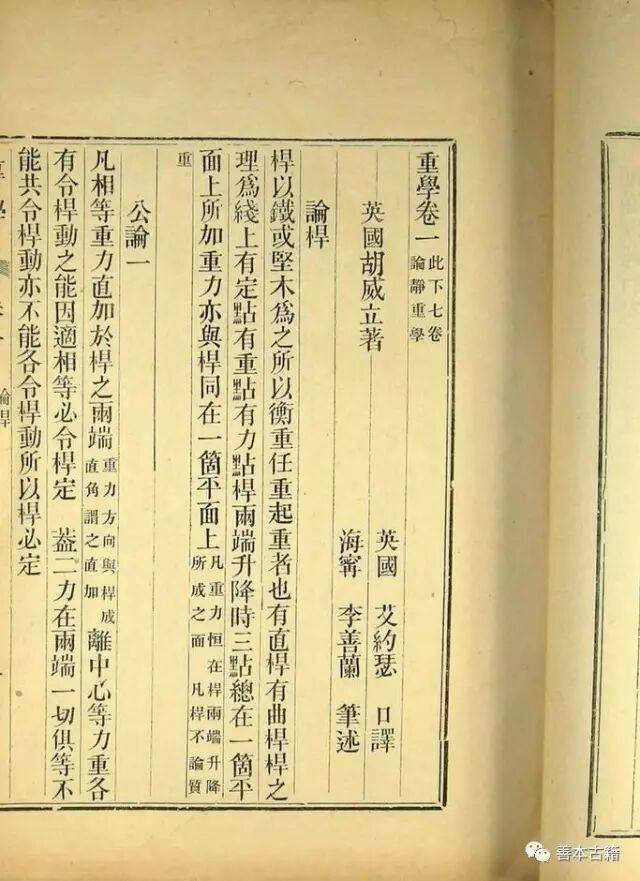 重學卷一此下七卷論靜重學
英國胡威立著
英國 艾約瑟 口譯
海寧 李善蘭 筆述
論桿
桿以鐵或堅木爲之所以衡重任重起重者也有直桿有曲桿桿之
理爲綫上有定點有重點有力點桿兩端升降時三點總在一箇平
面上所加重力亦與桿同在一箇平面上凡重力恒在桿兩端升降所成之面 凡桿不論質
重
公論一
凡相等重力直加於桿之兩端重力方向與桿成直角謂之直加離中心等力重各
有令桿動之能因適相等必令桿定 葢二力在兩端一切俱等不
能共令桿動亦不能各令桿動所以桿必定
善本古籍